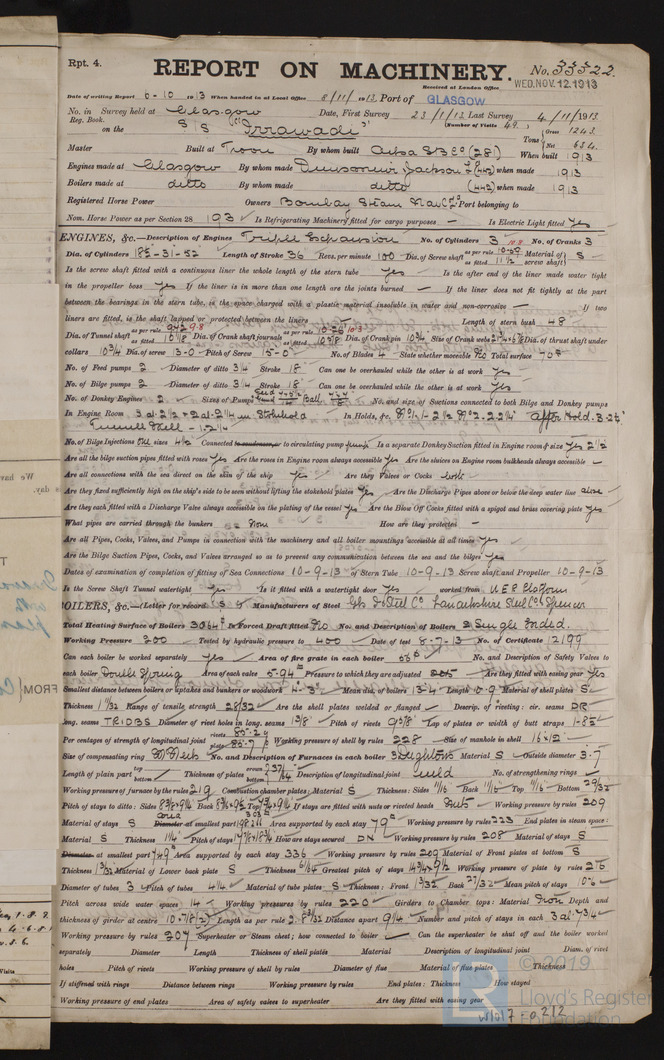 Rpt. 4.
REPORT ON MACHINERY.
No. 33322.
Received at London Office
WED. NOV. 12. 1913
Date of writing Report 6-10 1913 When handed in at Local Office 8/11/ 1913 Port of GLASGOW
No. in Survey held at Glasgow Date, First Survey 23/1/13 Last Survey 4/11/1913
Reg. Book. (Number of Visits 49)
on the S/S "Irrawadi" Tons Gross 1243 Net 654
Master Built at Troon By whom built Ailsa S B Co (281) When built 1913
Engines made at Glasgow By whom made Dunsmuir Jackson Ld (443) when made 1913
Boilers made at ditto By whom made ditto (443) when made 1913
Registered Horse Power Owners Bombay Steam Nav Co Ld Port belonging to
Nom. Horse Power as per Section 28 193 Is Refrigerating Machinery fitted for cargo purposes — Is Electric Light fitted Yes
ENGINES, &c.—Description of Engines Triple Expansion No. of Cylinders 3 No. of Cranks 3
Dia. of Cylinders 18½-31-52 Length of Stroke 36 Revs. per minute 100 Dia. of Screw shaft as per rule as fitted 11½ Material of screw shaft S
Is the screw shaft fitted with a continuous liner the whole length of the stern tube Yes Is the after end of the liner made water tight
in the propeller boss Yes If the liner is in more than one length are the joints burned — If the liner does not fit tightly at the part
between the bearings in the stern tube, is the space charged with a plastic material insoluble in water and non-corrosive — If two
liners are fitted, is the shaft lapped or protected between the liners — Length of stern bush 48
Dia. of Tunnel shaft as per rule as fitted 10⅛ Dia. of Crank shaft journals as per rule as fitted 10⅜ Dia. of Crank pin 10¾ Size of Crank webs Dia. of thrust shaft under
collars 10¾ Dia. of screw 13-0 Pitch of Screw 15-0 No. of Blades 4 State whether moveable No Total surface 70
No. of Feed pumps 2 Diameter of ditto 3¼ Stroke 18 Can one be overhauled while the other is at work Yes
No. of Bilge pumps 2 Diameter of ditto 3¼ Stroke 18 Can one be overhauled while the other is at work Yes
No. of Donkey Engines 2 Sizes of Pumps No. and size of Suctions connected to both Bilge and Donkey pumps
In Engine Room 3 at 2½ & 2 at 2¼ in Stokehold In Holds, &c. No 1-1-2½ No 2-2.2¼ After Hold. 3.2½
Tunnel Well - 1.2¼
No. of Bilge Injections One sizes 4½ Connected to circulating pump Is a separate Donkey Suction fitted in Engine room & size Yes 2½
Are all the bilge suction pipes fitted with roses Yes Are the roses in Engine room always accessible Yes Are the sluices on Engine room bulkheads always accessible —
Are all connections with the sea direct on the skin of the ship Yes Are they Valves or Cocks both
Are they fixed sufficiently high on the ship's side to be seen without lifting the stokehold plates Yes Are the Discharge Pipes above or below the deep water line above
Are they each fitted with a Discharge Valve always accessible on the plating of the vessel Yes Are the Blow Off Cocks fitted with a spigot and brass covering plate Yes
What pipes are carried through the bunkers None How are they protected —
Are all Pipes, Cocks, Valves, and Pumps in connection with the machinery and all boiler mountings accessible at all times Yes
Are the Bilge Suction Pipes, Cocks, and Valves arranged so as to prevent any communication between the sea and the bilges Yes
Dates of examination of completion of fitting of Sea Connections 10-9-13 of Stern Tube 10-9-13 Screw shaft and Propeller 10-9-13
Is the Screw Shaft Tunnel watertight Yes Is it fitted with a watertight door Yes worked from U.E.R. Platform
BOILERS, &c.—(Letter for record S) Manufacturers of Steel Steel Co Lanarkshire Steel Co Spencer
Total Heating Surface of Boilers 3064 Is Forced Draft fitted No No. and Description of Boilers 2 Single Ended.
Working Pressure 200 Tested by hydraulic pressure to 400 Date of test 8-7-13 No. of Certificate 12199
Can each boiler be worked separately Yes Area of fire grate in each boiler No. and Description of Safety Valves to
each boiler Double Spring Area of each valve 5.94 Pressure to which they are adjusted 205 Are they fitted with easing gear Yes
Smallest distance between boilers or uptakes and bunkers or woodwork 4-3 Mean dia. of boilers 13-4 Length 10-9 Material of shell plates S
Thickness Range of tensile strength 28/32 Are the shell plates welded or flanged — Descrip. of riveting: cir. seams DR
long. seams TRIDBS Diameter of rivet holes in long. seams 1⅜ Pitch of rivets 9⅜ Lap of plates or width of butt straps
Per centages of strength of longitudinal joint rivets plate Working pressure of shell by rules 228 Size of manhole in shell 16 x 12
Size of compensating ring No. and Description of Furnaces in each boiler 3 Deightons Material S Outside diameter 3.7
Length of plain part top bottom Thickness of plates crown bottom Description of longitudinal joint weld No. of strengthening rings —
Working pressure of furnace by the rules 219 Combustion chamber plates: Material S Thickness: Sides 11/16 Back 11/16 Top 11/16 Bottom
Pitch of stays to ditto: Sides Back Top If stays are fitted with nuts or riveted heads Nuts Working pressure by rules 209
Material of stays S area Diameter at smallest part Area supported by each stay 79 Working pressure by rules 223 End plates in steam space:
Material S Thickness Pitch of stays How are stays secured DN Working pressure by rules 208 Material of stays S
Diameter at smallest part Area supported by each stay 336 Working pressure by rules 209 Material of Front plates at bottom S
Thickness Material of Lower back plate S Thickness Greatest pitch of stays Working pressure of plate by rules 276
Diameter of tubes 3 Pitch of tubes 4¼ Material of tube plates S Thickness: Front Back 27/32 Mean pitch of stays
Pitch across wide water spaces 14 Working pressures by rules 220 Girders to Chamber tops: Material Iron Depth and
thickness of girder at centre Length as per rule Distance apart 9¼ Number and pitch of stays in each 3 at 7¾
Working pressure by rules 207 Superheater or Steam chest; how connected to boiler — Can the superheater be shut off and the boiler worked
separately Diameter Length Thickness of shell plates Material Description of longitudinal joint Diam. of rivet
holes Pitch of rivets Working pressure of shell by rules Diameter of flue Material of flue plates Thickness
If stiffened with rings Distance between rings Working pressure by rules End plates: Thickness How stayed
Working pressure of end plates Area of safety valves to superheater Are they fitted with easing gear
© 2019
Lloyd's Register
Foundation
W1017-0212